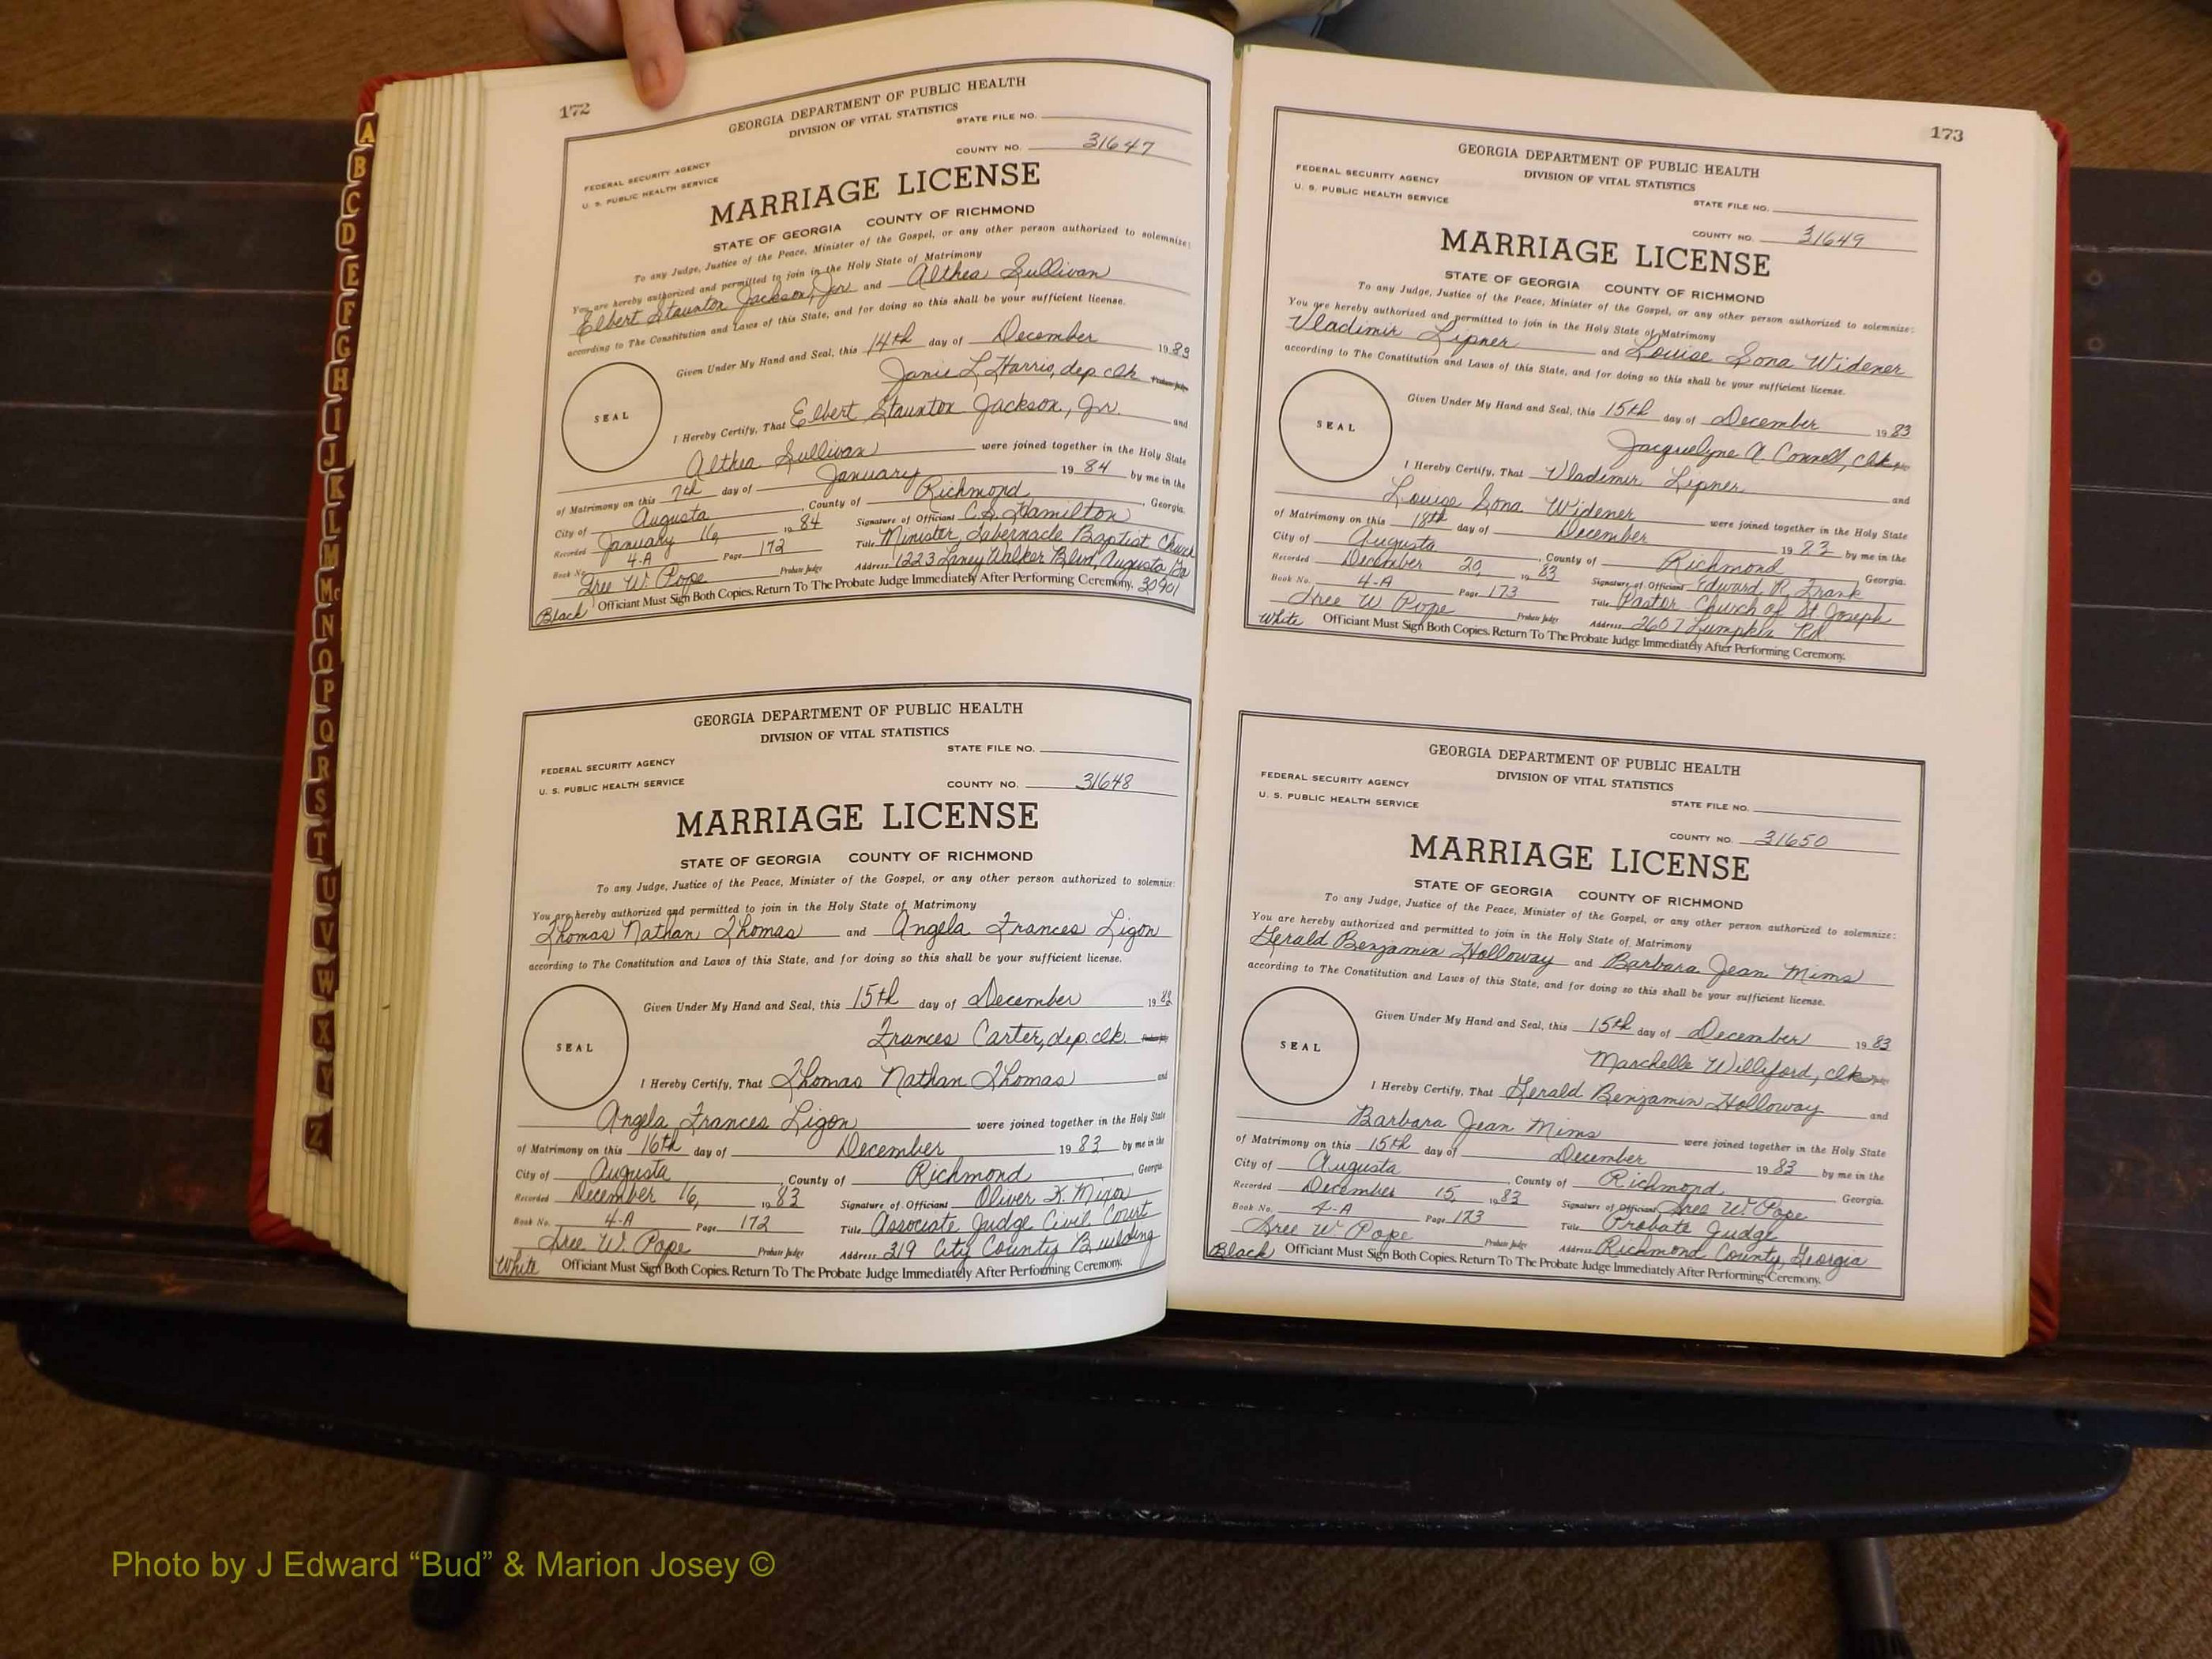 A
B
C
D
E
F
G
H
I
J
K
L
M
Mc
N
O
P
Q
R
S
T
U
V
W
X
Y
Z
172
GEORGIA DEPARTMENT OF PUBLIC HEALTH
DIVISION OF VITAL STATISTICS
STATE FILE NO.
COUNTY NO. 31647
FEDERAL SECURITY AGENCY
U. S. PUBLIC HEALTH SERVICE
MARRIAGE LICENSE
STATE OF GEORGIA COUNTY OF RICHMOND
To any Judge, Justice of the Peace, Minister of the Gospel, or any other person authorized to solemnize:
You are hereby authorized and permitted to join in the Holy State of Matrimony
Elbert Staunton Jackson, Jr. and Althea Sullivan
according to The Constitution and Laws of this State, and for doing so this shall be your sufficient license.
Given Under My Hand and Seal, this 14th day of December 1983
Janie L. Harris, dep. clk. Probate Judge
SEAL
I Hereby Certify, That Elbert Staunton Jackson, Jr. and
Althea Sullivan were joined together in the Holy State
of Matrimony on this 7th day of January 1984 by me in the
City of Augusta, County of Richmond, Georgia.
Recorded January 16, 1984 Signature of Officiant C.S. Hamilton
Book No. 4-A Page 172 Title Minister, Tabernacle Baptist Church
Probate Judge Address 1223 Laney Walker Blvd, Augusta Ga
Black Officiant Must Sign Both Copies. Return To The Probate Judge Immediately After Performing Ceremony. 30901
GEORGIA DEPARTMENT OF PUBLIC HEALTH
DIVISION OF VITAL STATISTICS
STATE FILE NO.
FEDERAL SECURITY AGENCY
U. S. PUBLIC HEALTH SERVICE COUNTY NO. 31648
MARRIAGE LICENSE
STATE OF GEORGIA COUNTY OF RICHMOND
To any Judge, Justice of the Peace, Minister of the Gospel, or any other person authorized to solemnize:
You are hereby authorized and permitted to join in the Holy State of Matrimony
Thomas Nathan Thomas and Angela Frances Ligon
according to The Constitution and Laws of this State, and for doing so this shall be your sufficient license.
Given Under My Hand and Seal, this 15th day of December 1983
Frances Carter, dep. clk. Probate Judge
SEAL
I Hereby Certify, That Thomas Nathan Thomas and
Angela Frances Ligon were joined together in the Holy State
of Matrimony on this 16th day of December 1983 by me in the
City of Augusta, County of Richmond, Georgia.
Recorded December 16, 1983 Signature of Officiant Oliver K. Mixon
Book No. 4-A Page 172 Title Associate Judge Civil Court
W. Pope Probate Judge Address 319 City County Building
White Officiant Must Sign Both Copies. Return To The Probate Judge Immediately After Performing Ceremony.
173
GEORGIA DEPARTMENT OF PUBLIC HEALTH
DIVISION OF VITAL STATISTICS
FEDERAL SECURITY AGENCY
U. S. PUBLIC HEALTH SERVICE
STATE FILE NO.
COUNTY NO. 31649
MARRIAGE LICENSE
STATE OF GEORGIA COUNTY OF RICHMOND
To any Judge, Justice of the Peace, Minister of the Gospel, or any other person authorized to solemnize:
You are hereby authorized and permitted to join in the Holy State of Matrimony
Vladimir Lipner and Louise Sona Widener
according to The Constitution and Laws of this State, and for doing so this shall be your sufficient license.
Given Under My Hand and Seal, this 15th day of December 1983
Jacquelyne A Connell, clk
SEAL
I Hereby Certify, That Vladimir Lipner and
Louise Sona Widener were joined together in the Holy State
of Matrimony on this 18th day of December 1983 by me in the
City of Augusta, County of Richmond, Georgia.
Recorded December 20, 1983 Signature of Officiant Edward R. Frank
Book No. 4-A Page 173 Title Pastor Church of St Joseph
W. Pope Probate Judge Address 2607 Lumpkin Rd.
White Officiant Must Sign Both Copies. Return To The Probate Judge Immediately After Performing Ceremony.
GEORGIA DEPARTMENT OF PUBLIC HEALTH
DIVISION OF VITAL STATISTICS
FEDERAL SECURITY AGENCY
U. S. PUBLIC HEALTH SERVICE
STATE FILE NO.
COUNTY NO. 31650
MARRIAGE LICENSE
STATE OF GEORGIA COUNTY OF RICHMOND
To any Judge, Justice of the Peace, Minister of the Gospel, or any other person authorized to solemnize:
You are hereby authorized and permitted to join in the Holy State of Matrimony
Gerald Benjamin Holloway and Barbara Jean Mims
according to The Constitution and Laws of this State, and for doing so this shall be your sufficient license.
Given Under My Hand and Seal, this 15th day of December 1983
Marchelle Williford, clk
SEAL
I Hereby Certify, That Gerald Benjamin Holloway and
Barbara Jean Mims were joined together in the Holy State
of Matrimony on this 15th day of December 1983 by me in the
City of Augusta, County of Richmond, Georgia.
Recorded December 15, 1983 Signature of Officiant W. Pope
Book No. 4-A Page 173 Title Probate Judge
W. Pope Probate Judge Address Richmond County, Georgia
Black Officiant Must Sign Both Copies. Return To The Probate Judge Immediately After Performing Ceremony.
Photo by J Edward “Bud” & Marion Josey ©